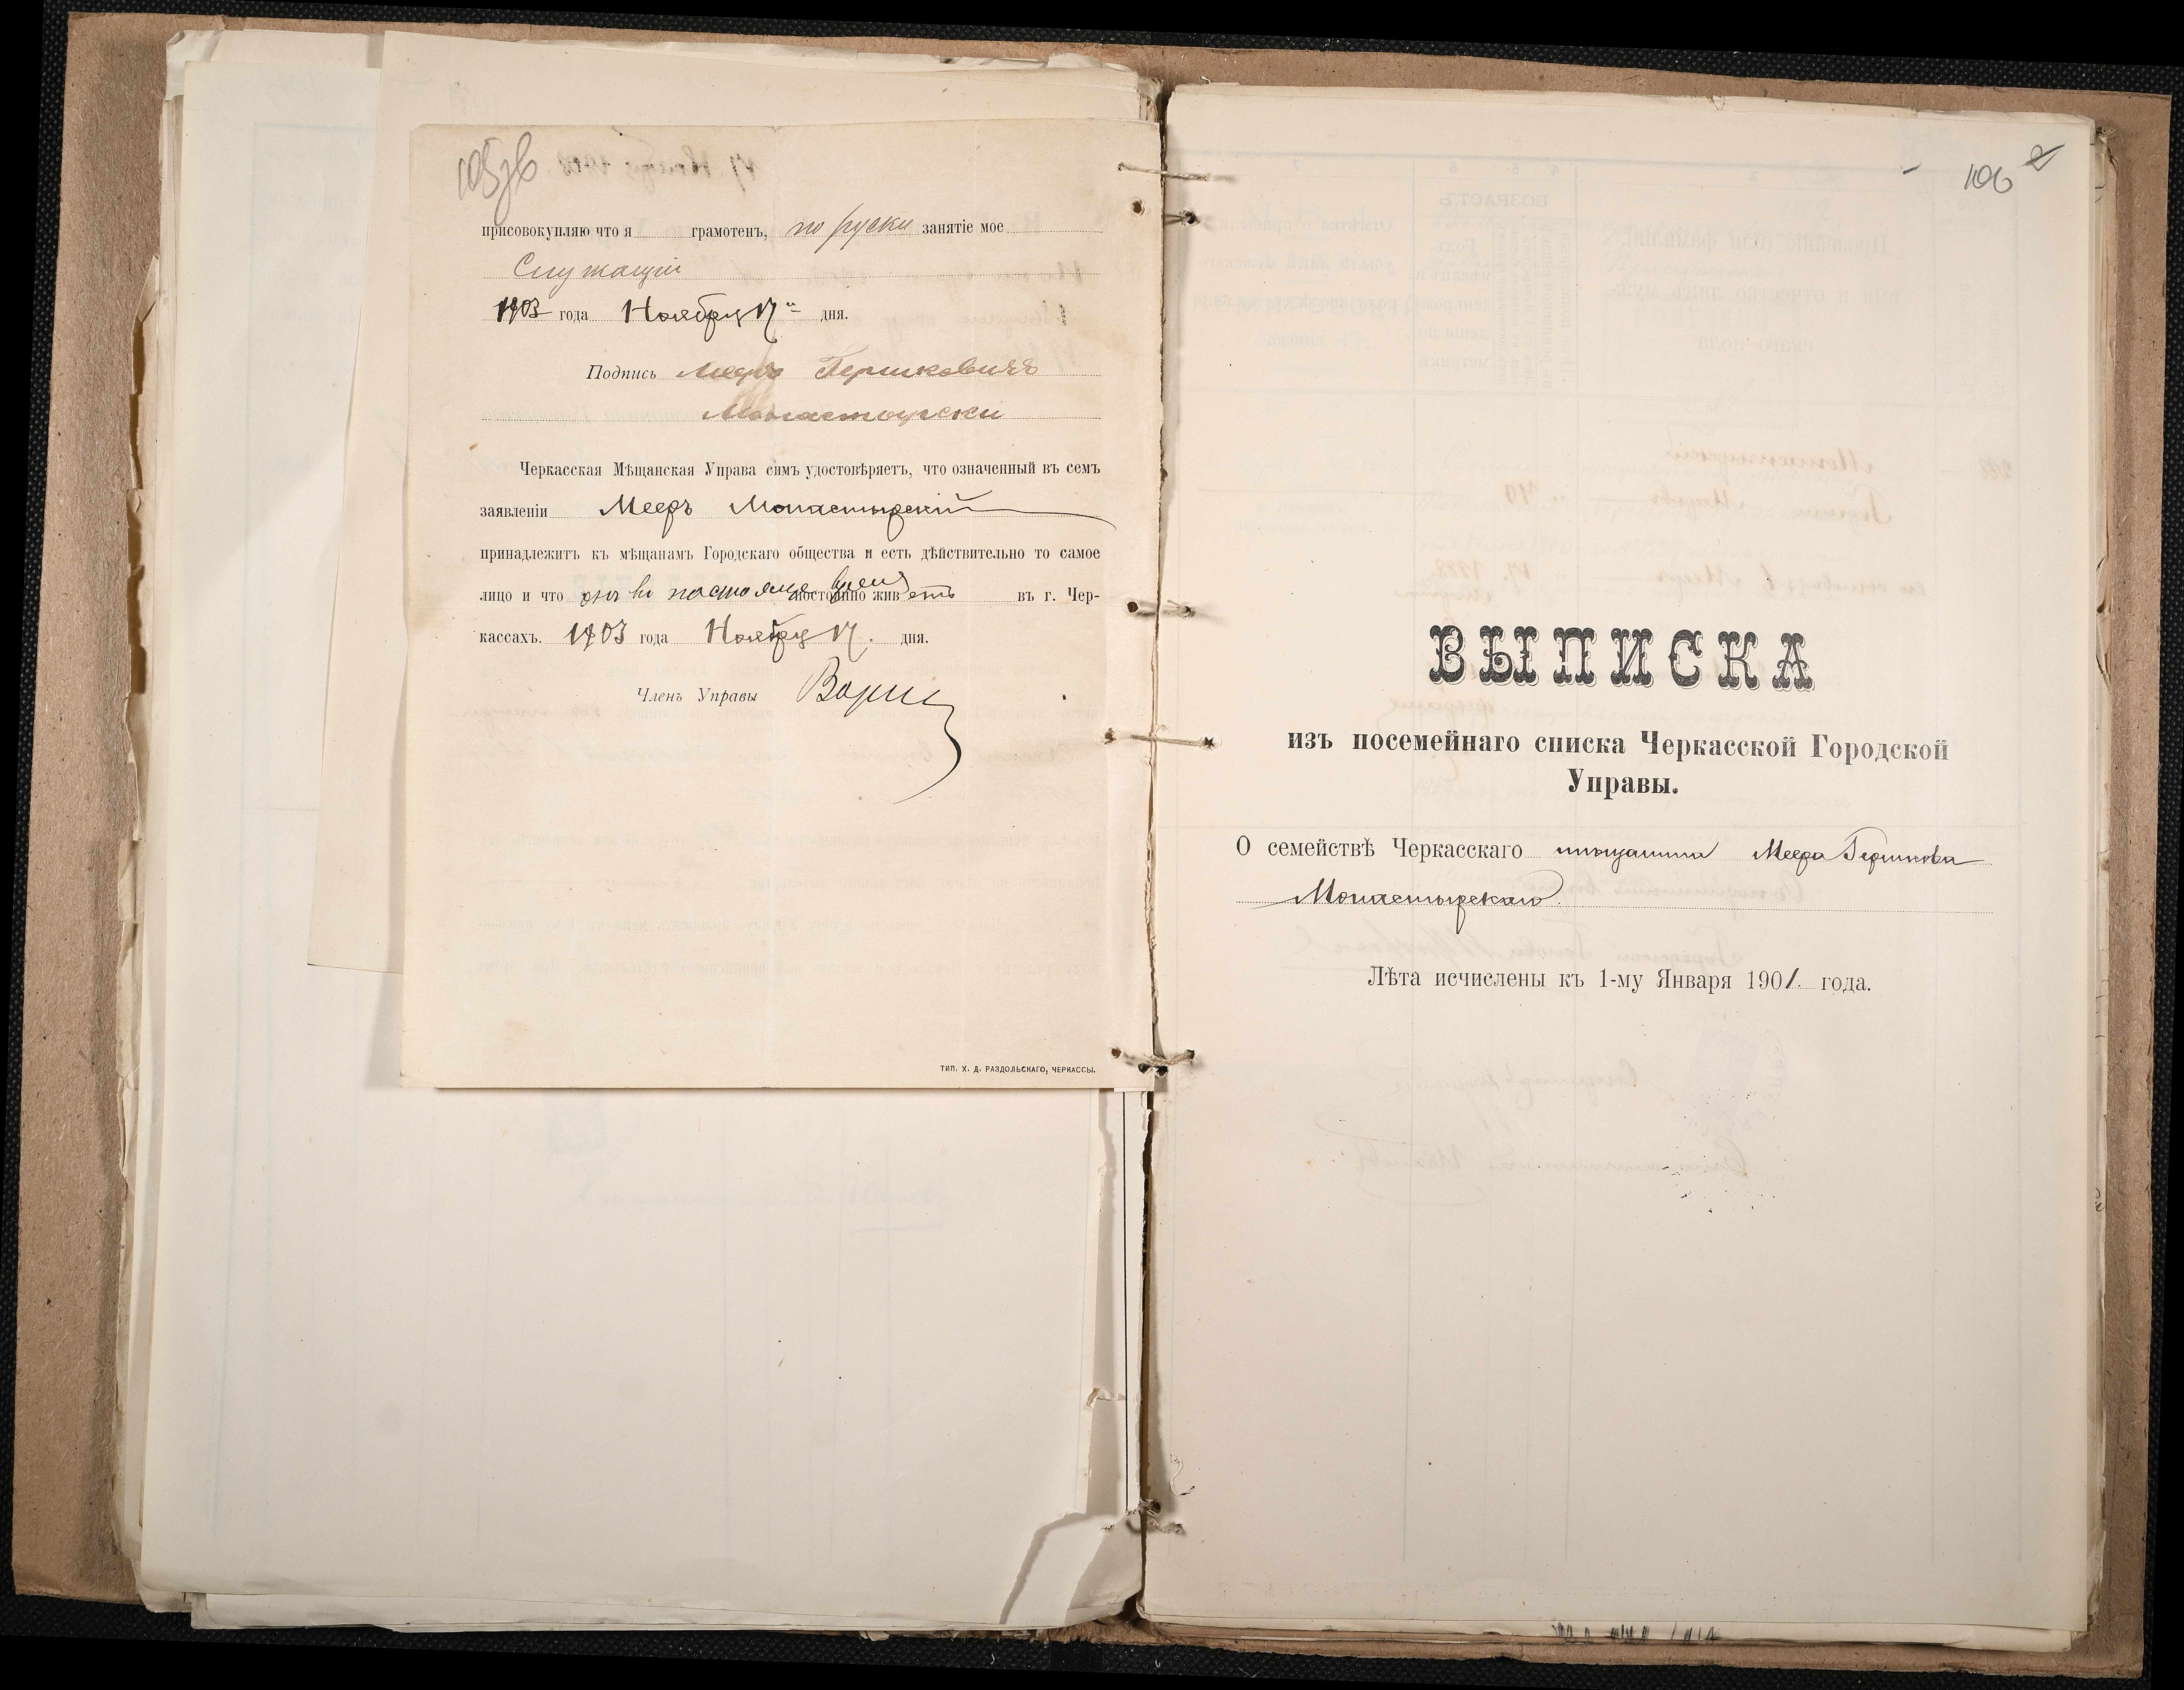 105об
присовокупляю что я грамотенъ, по руски занятіе мое
Служащій
1903 года Ноября 17 дня.
Подпись Мееръ Гершковичъ
Монастирски
Черкасская Мѣщанская Управа симъ удостовѣряетъ, что означенный въ семъ
заявленіи Мееръ Монастырскій
принадлежитъ къ мѣщанамъ Городскаго общества и есть дѣйствительно то самое
лицо и что онъ въ настоящее время постоянно живетъ въ г. Чер-
кассахъ. 1903 года Ноября 17. дня.
Членъ Управы
ТИП. Х. Д. РАЗДОЛЬСКАГО, ЧЕРКАССЫ.
106 2
ВЫПИСКА
изъ посемейнаго списка Черкасской Городской
Управы.
О семействѣ Черкасскаго мѣщанина Меера Гершкова
Монастырскаго.
Лѣта исчислены къ 1-му Января 1901. года.